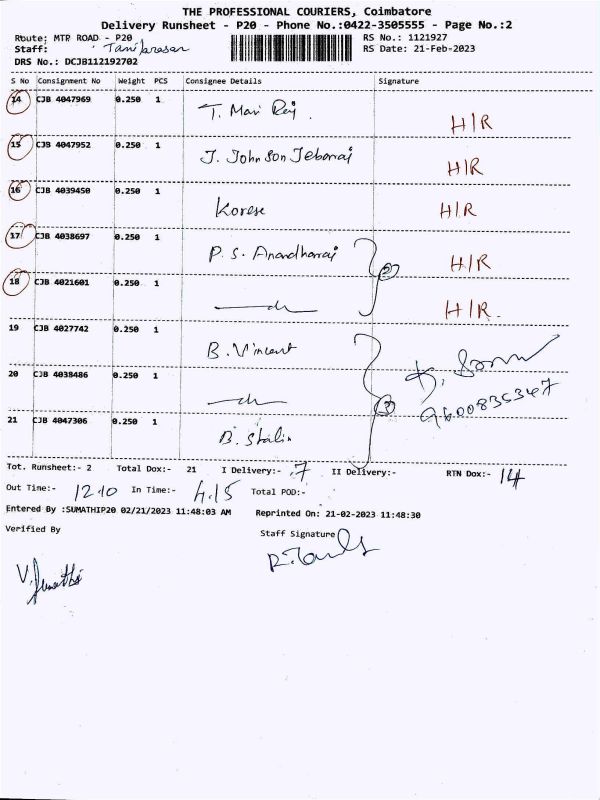 THE PROFESSIONAL COURIERS, Coimbatore
Delivery Runsheet - P20 - Phone No.:0422-3505555 - Page No.:2
Route: MTR ROAD - P20 RS No.: 1121927
Staff: RS Date: 21-Feb-2023
DRS No.: DCJB112192702
S No Consignment No Weight PCS Consignee Details Signature
14 CJB 4047969 0.250 1 T. Mari Raj. H/R
15 CJB 4047952 0.250 1 J. Johnson Jebaraj H/R
16 CJB 4039450 0.250 1 Korese H/R
17 CJB 4038697 0.250 1 P. S. Anandharaj H/R
18 CJB 4021601 0.250 1 H/R.
19 CJB 4027742 0.250 1 B. Vincent
20 CJB 4038486 0.250 1
21 CJB 4047306 0.250 1 B. Stalin
Tot. Runsheet:- 2 Total Dox:- 21 I Delivery:- 7 II Delivery:- RTN Dox:- 14
Out Time:- 12.10 In Time:- 4.15 Total POD:-
Entered By :SUMATHIP20 02/21/2023 11:48:03 AM Reprinted On: 21-02-2023 11:48:30
Verified By Staff Signature
V. Sumathi